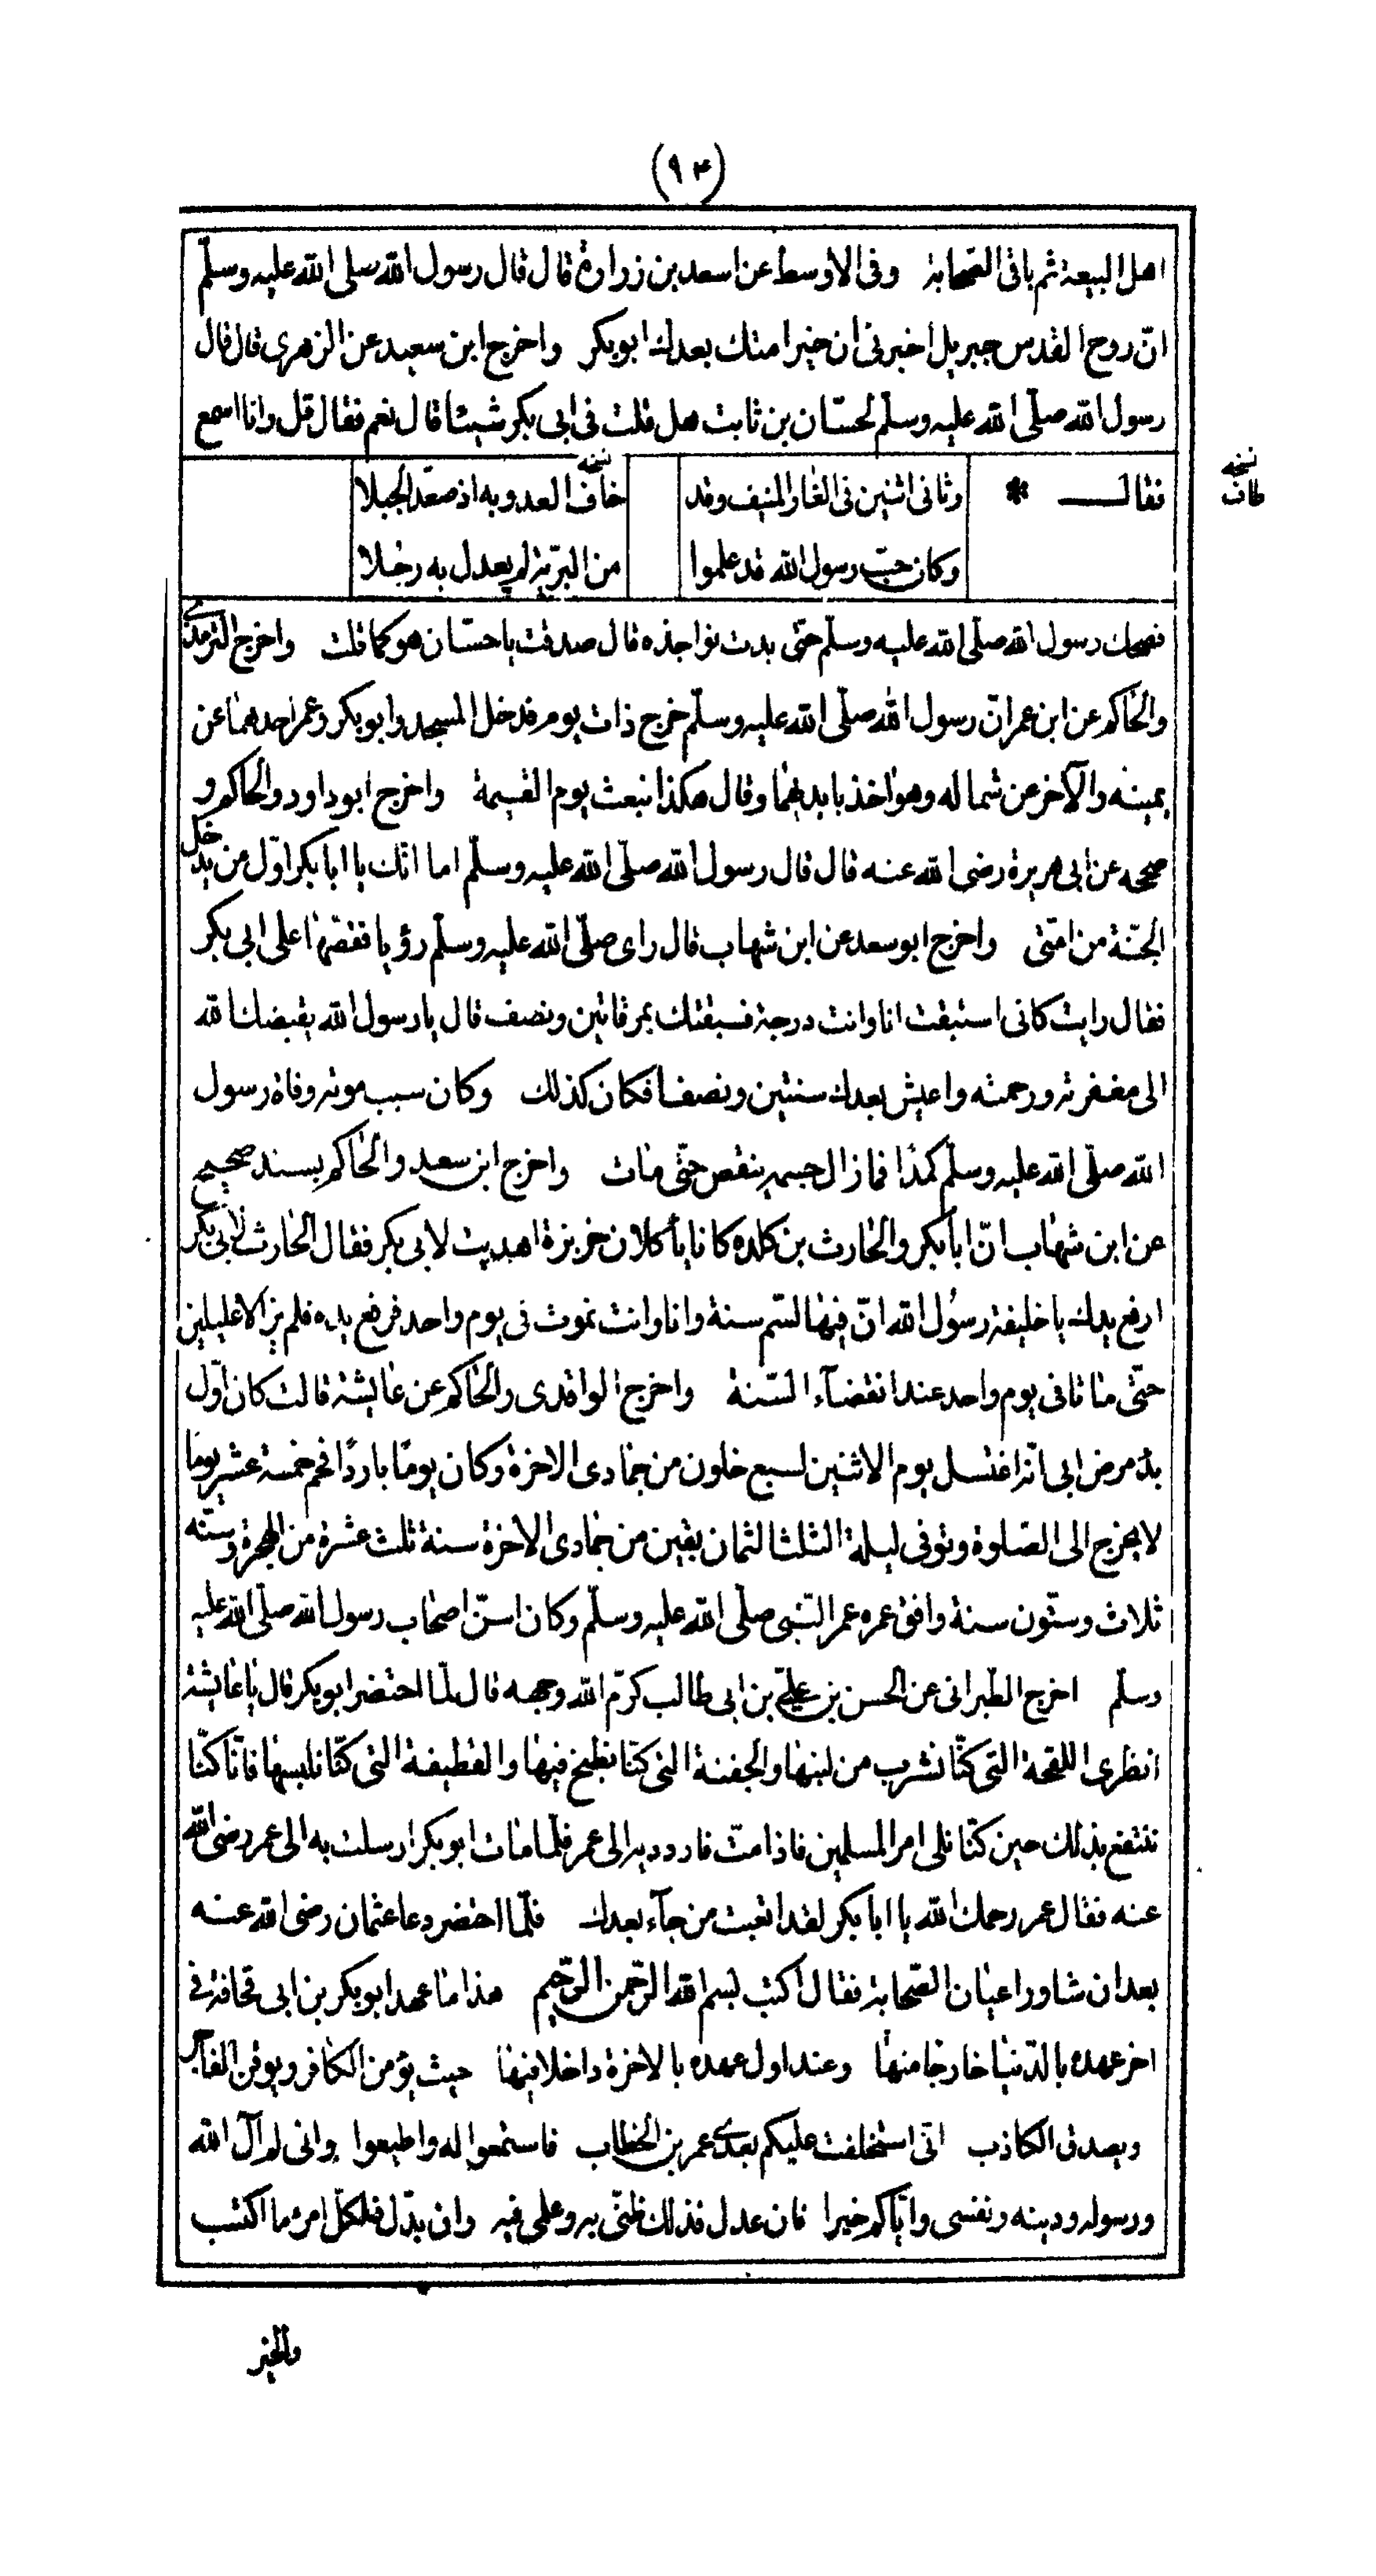 (٩٣)
اهل البيعة ثم باقى الصحابة وفى الاوسط عن اسعد بن زرارة قال قال رسول الله صلى الله عليه وسلّم
انّ روح القدس جبريل اخبرنى ان خير امتك بعدك ابو بكر واخرج ابن سعيد عن الزهرى قال قال
رسول الله صلّى الله عليه وسلّم لحسّان بن ثابت هل قلت فى ابى بكر شيئا قال نعم فقال قل وانا اسمع
فقال * وثانى اثنين فى الغار المنيف وقد خاف العدو به اذ صعّد الجبلا
نسخه
نسخه طاف
وكان حبّ رسول الله قد علموا من البريّة لم يعدل به رجلا
فضحك رسول الله صلّى الله عليه وسلّم حتى بدت نواجذه قال صدقت يا حسّان هو كما قلت واخرج الترمذى
والحاكم عن ابن عمر انّ رسول الله صلّى الله عليه وسلّم خرج ذات يوم فدخل المسجد وابو بكر وعمر احدهما عن
يمينه والآخر عن شماله وهو اخذ بايديهما وقال هكذا نبعث يوم القيمة واخرج ابو داود والحاكم و
صححه عن ابى هريرة رضى الله عنه قال قال رسول الله صلّى الله عليه وسلّم اما انّك يا ابا بكر اوّل من يدخل
الجنّة من امتى واخرج ابو سعد عن ابن شهاب قال راى صلّى الله عليه وسلّم رؤيا فقصّها على ابى بكر
فقال رايت كانى استبقت انا وانت درجة فسبقتك بمرقاتين ونصف قال يا رسول الله يقبضك الله
الى مغفرته ورحمته واعيش بعدك سنتين ونصفا فكان كذلك وكان سبب موته وفاة رسول
الله صلّى الله عليه وسلّم كمدًا فما زال جسمه ينقص حتّى مات واخرج ابن سعد والحاكم بسند صحيح
عن ابن شهاب انّ ابا بكر والحارث بن كلده كانا ياكلان خزيرة اهديت لابى بكر فقال الحارث لابى بكر
ارفع يدك يا خليفة رسول الله انّ فيها لسّم سنة وانا وانت نموت فى يوم واحد فرفع يده فلم يزالا عليلين
حتّى ماتا فى يوم واحد عند انقضآء السّنة واخرج الواقدى والحاكم عن عايشة قالت كان اوّل
بدؤ مرض ابى انّه اغتسل يوم الاثنين لسبع خلون من جمادى الاخرة وكان يومًا باردًا فحم خمسة عشر يوما
لا يخرج الى الصّلوة وتوفى ليلة الثلثا لثمان بقين من جمادى الاخرة سنة ثلث عشرة من الهجرة وسنّه
ثلاث وستّون سنة وافق عمره عمر النّبى صلّى الله عليه وسلّم وكان اسنّ اصحاب رسول الله صلّى الله عليه
وسلّم اخرج الطبرانى عن الحسن بن علىّ بن ابى طالب كرّم الله وجهه قال لمّا احتضر ابو بكر قال يا عايشة
انظرى اللقحة التى كنّا نشرب من لبنها والجفنة التى كنّا نطبخ فيها والقطيفة التى كنّا نلبسها فانّا كنّا
ننتفع بذلك حين كنّا نلى امر المسلمين فاذا متّ فاردديه الى عمر فلمّا مات ابو بكر ارسلت به الى عمر رضى الله
عنه فقال عمر رحمك الله يا ابا بكر لقد اتعبت من جآء بعدك فلمّا احتضر دعا عثمان رضى الله عنه
بعد ان شاور اعيان الصّحابة فقال اكتب بسم الله الرّحمن الرّحيم هذا ما عهد ابو بكر بن ابى قحافة فى
اخر عهده بالدّنيا خارجا منها وعند اول عهده بالاخرة داخلا فيها حيث يؤمن الكافر ويوقن الفاجر
ويصدق الكاذب انى استخلفت عليكم بعدى عمر بن الخطاب فاستمعوا له واطيعوا وانى لم آل الله
ورسوله ودينه ونفسى وايّاكم خيرا فان عدل فذلك ظنّى به وعلمى فيه وان بدّل فلكلّ امرء ما اكتسب
والخير